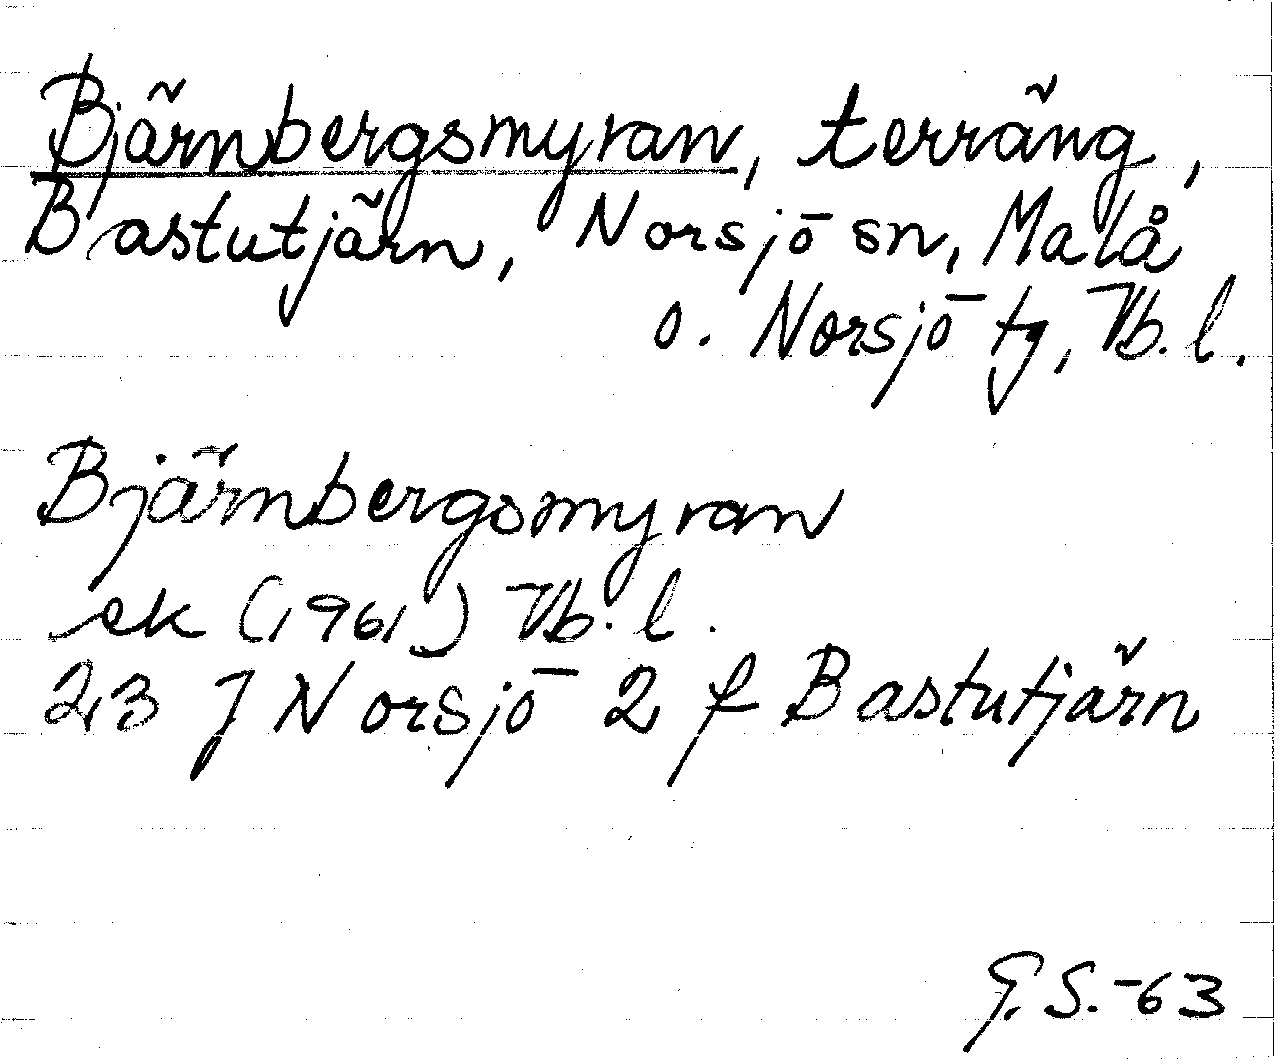 Bjärnbergsmyran, terräng,
Bastutjärn, Norsjö sn, Malå
o. Norsjö tg, Vb. l.
Bjärnbergsmyran
ek (1961) Vb. l.
23 J Norsjö 2 f Bastutjärn
G.S.-63